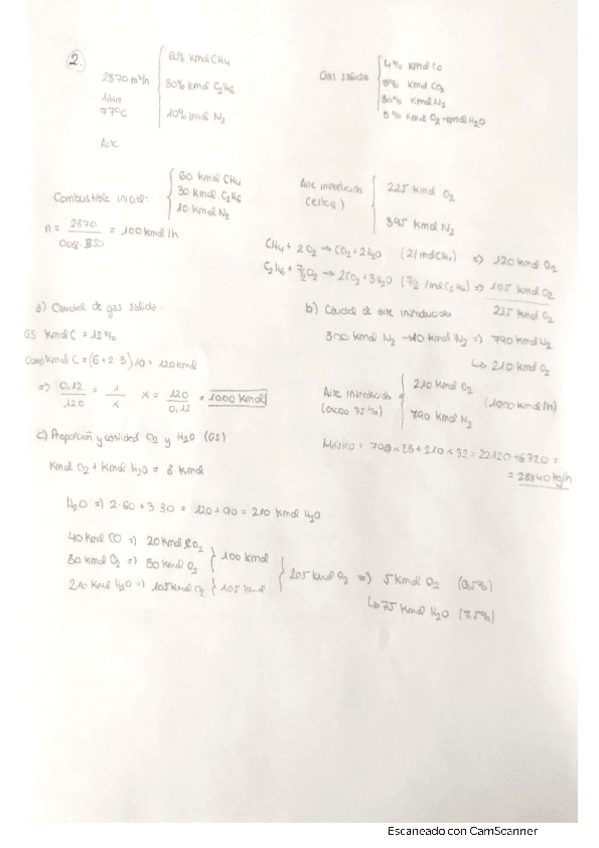 2.
60% kmol CH4
2870 m³/h
30% kmol C2H6
1 atm
77ºC
10% kmol N2
Aire
Gas salida
4% kmol CO
8% kmol CO2
80% kmol N2
8% kmol O2 + kmol H2O
Combustible inicial:
60 kmol CH4
30 kmol C2H6
10 kmol N2
n = 2870 / 0,082 · 350 = 100 kmol/h
Aire introducido
225 kmol O2
895 kmol N2
CH4 + 2O2 → CO2 + 2H2O (2/mol CH4) => 120 kmol O2
C2H6 + 7/2 O2 → 2CO2 + 3H2O (7/2 /mol C2H6) => 105 kmol O2
225 kmol O2
a) Caudal de gas salida.
GS kmol C = 12%
kmol C = (6+2·3)10 = 120 kmol
=> 0,12/120 = 1/x x = 120/0,12 = 1000 kmol
b) Caudal de aire introducido
800 kmol N2 - 10 kmol N2 => 790 kmol N2
↳ 210 kmol O2
Aire introducido
210 kmol O2
790 kmol N2
(1000 kmol/h)
Másico = 790 × 28 + 210 × 32 = 22120 + 6720 =
= 28840 kg/h
c) Proporción y cantidad O2 y H2O (GS)
kmol O2 + kmol H2O = 8 kmol
H2O => 2·60 + 3·30 = 120 + 90 = 210 kmol H2O
40 kmol CO => 20 kmol O2
80 kmol O2 => 80 kmol O2
100 kmol
210 kmol H2O => 105 kmol O2
105 kmol
205 kmol O2 => 5 kmol O2 (0,5%)
↳ 75 kmol H2O (7,5%)
Escaneado con CamScanner